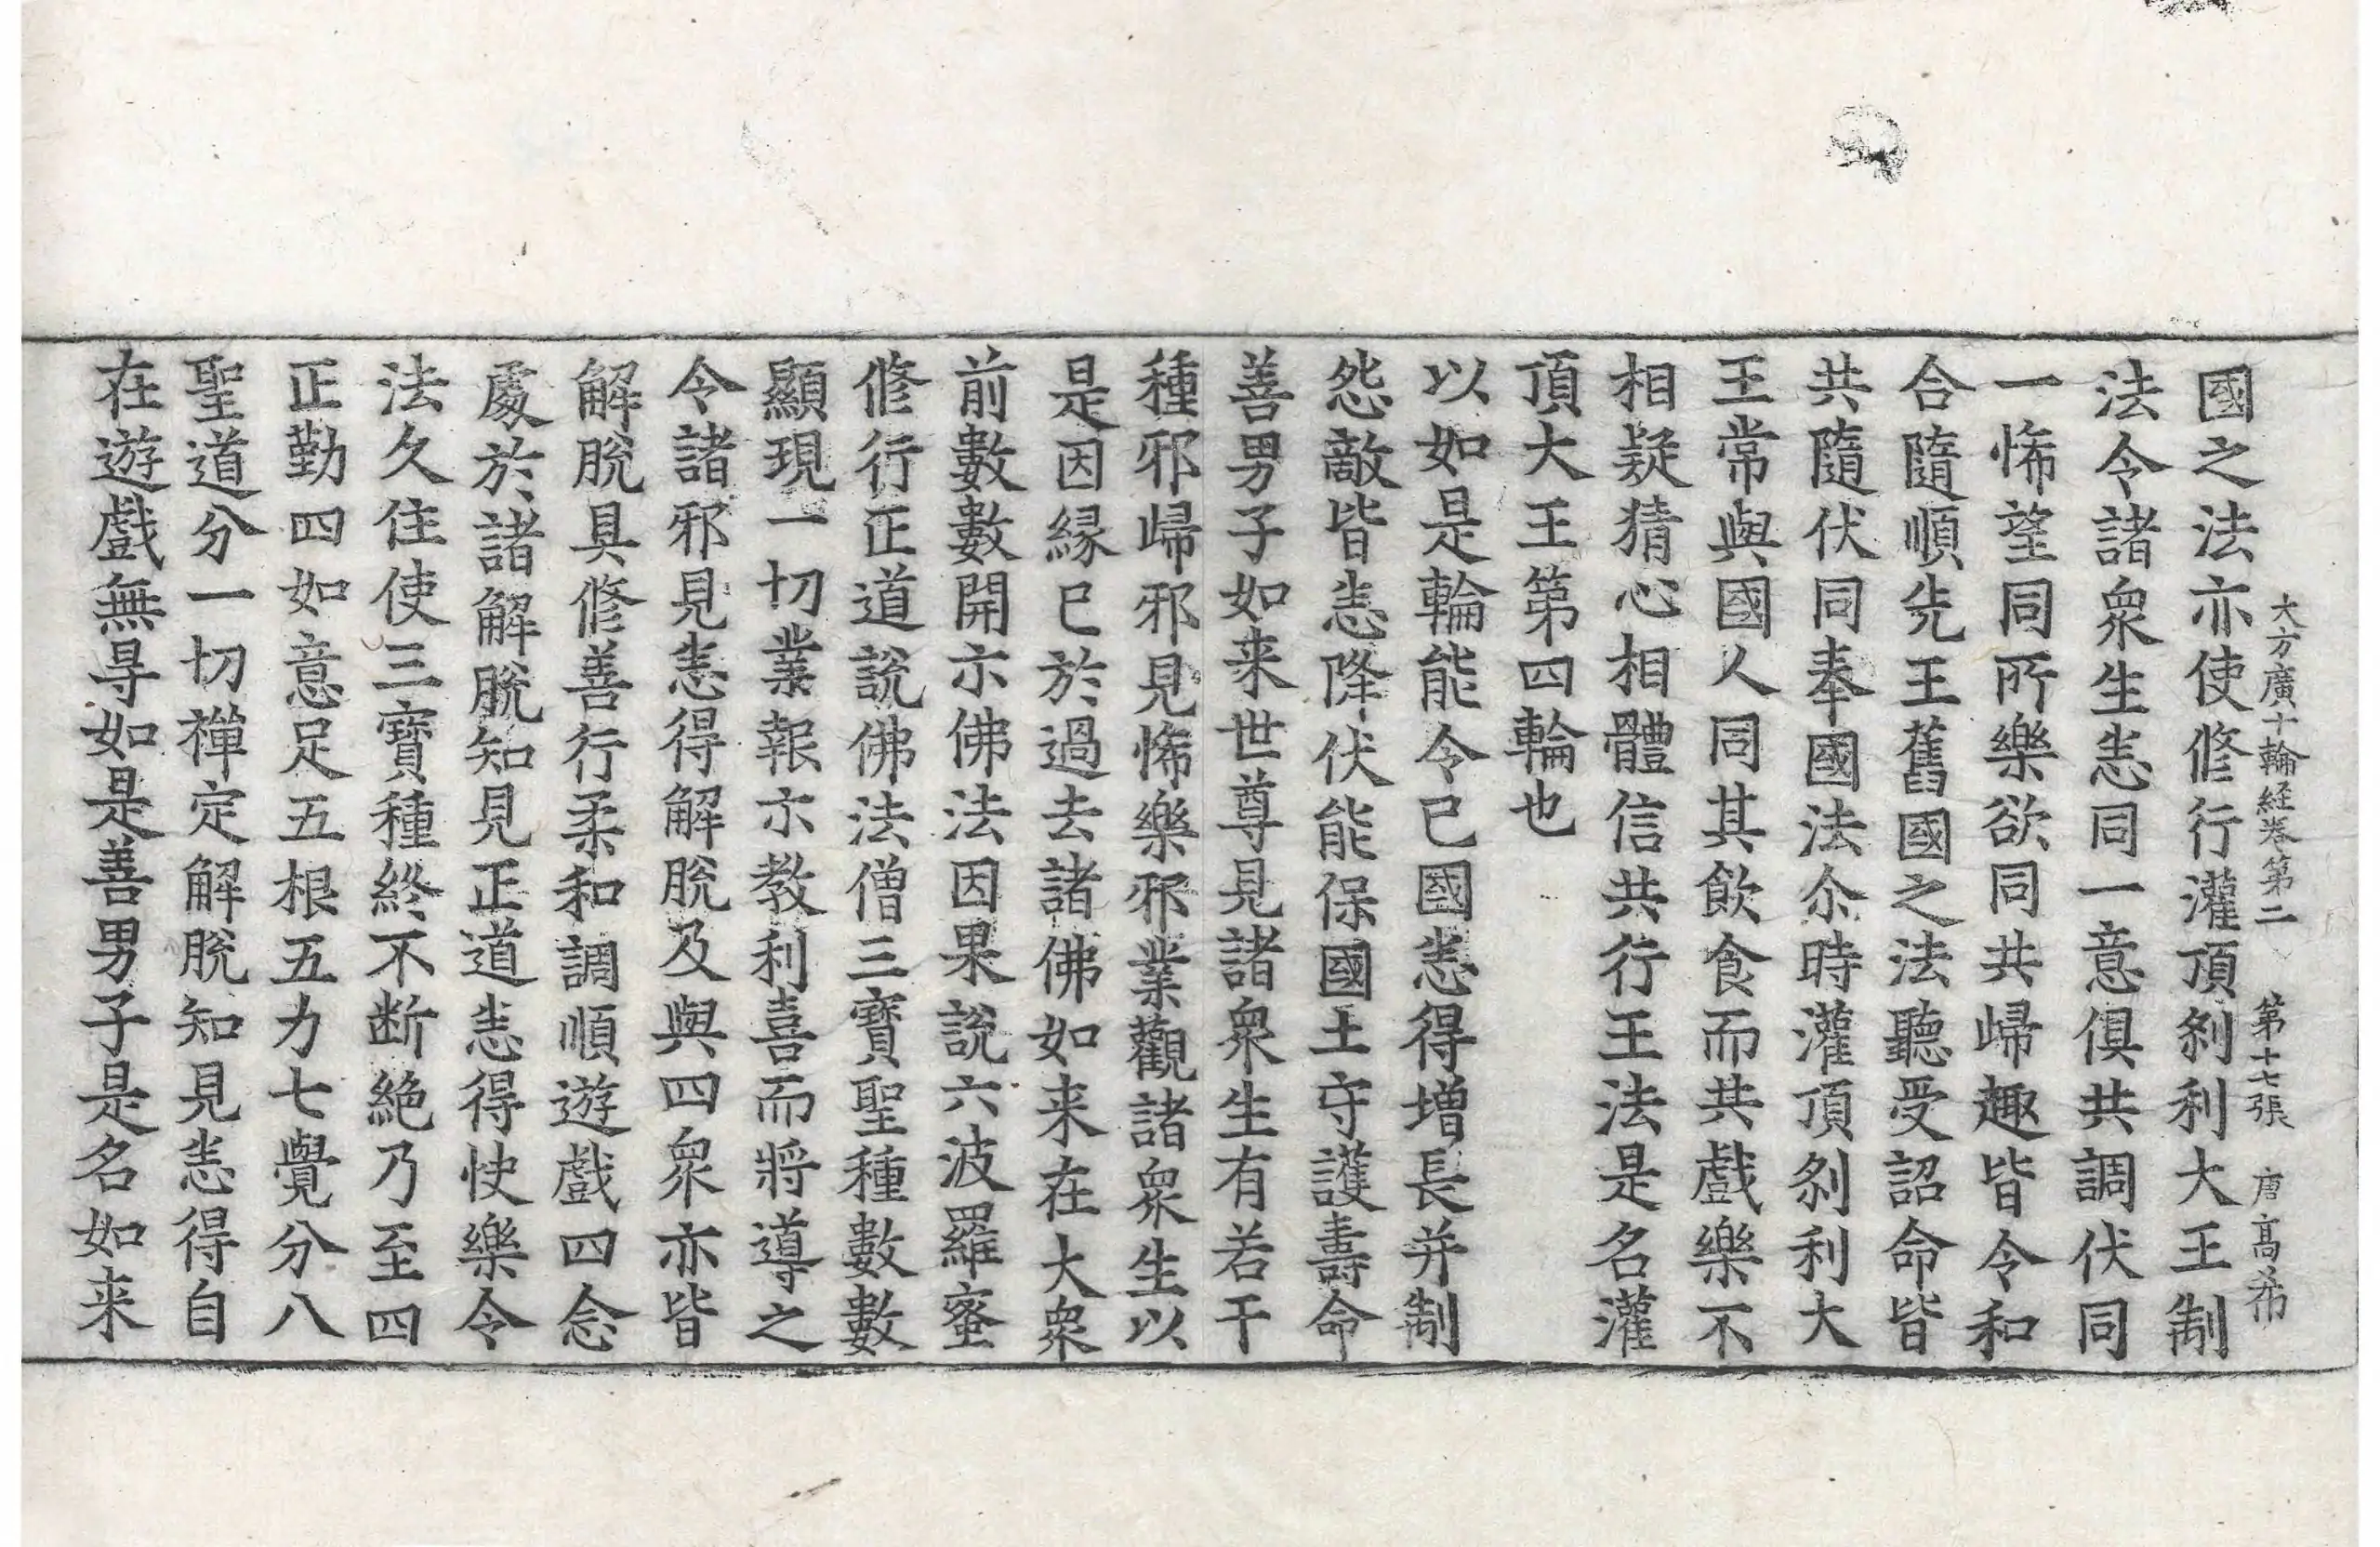 大方廣十輪経卷第二　第十七張　唐　高希
國之法亦使修行灌頂刹利大王制
法令諸衆生恙同一意俱共調伏同
一悕望同所樂欲同共歸趣皆令和
合隨順先王舊國之法聽受詔命皆
共隨伏同奉國法尒時灌頂刹利大
王常與國人同其飲食而共戲樂不
相疑猜心相體信共行王法是名灌
頂大王第四輪也
以如是輪能令已國恙得增長并制
怨敵皆恙降伏能保國土守護壽命
善男子如来世尊見諸衆生有若干
種邪歸邪見悕樂邪業觀諸衆生以
是因縁已於過去諸佛如来在大衆
前數數開示佛法因果說六波羅蜜
修行正道說佛法僧三寶聖種數數
顯現一切業報示教利喜而將導之
令諸邪見恙得解脫及與四衆亦皆
解脫具修善行柔和調順遊戲四念
處於諸解脫知見正道恙得快樂令
法久住使三寶種終不断絶乃至四
正勤四如意足五根五力七覺分八
聖道分一切禅定解脫知見恙得自
在遊戲無㝵如是善男子是名如来